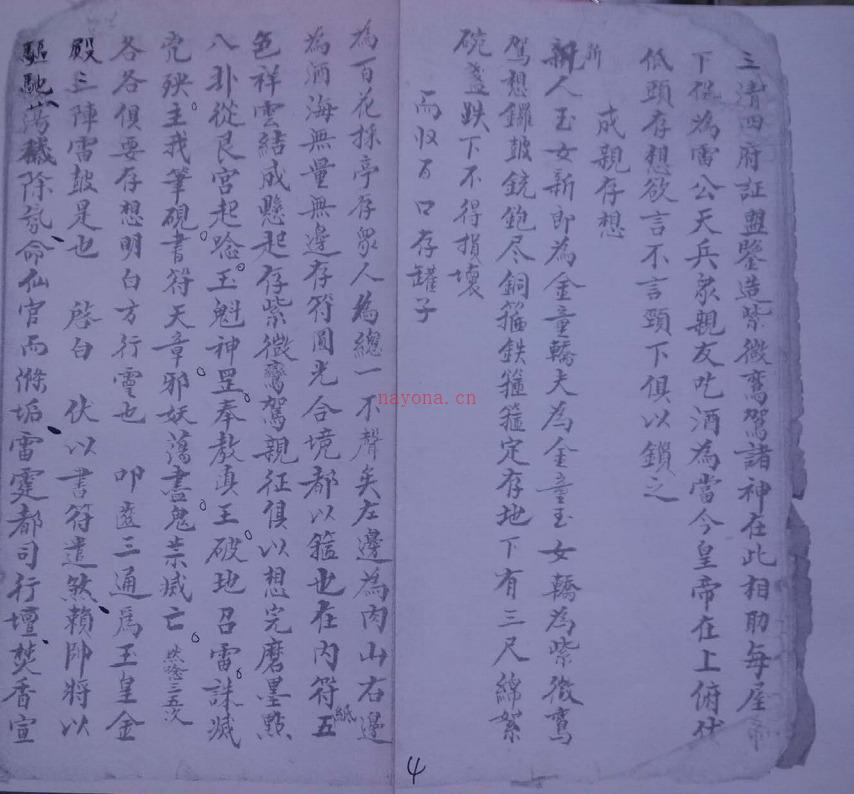 三清四府証盟鑒造紫微鸞駕諸神在此相助每屋帝
下從為雷公天兵眾親友吃酒為當今皇帝在上俯伏
低頭存想欲言不言頸下俱以鎖之
成親存想
新
新人玉女新郎為金童轎夫為金童玉女轎為紫微鸞
駕想鑼皷銃鉋尽銅箍鉄箍箍定存地下有三尺綿絮
碗盞跌下不得損壞
而収百口存罐子
4
為百花採亭存眾人為總一不聲矣左邊為肉山右邊
為酒海無量無邊存符圓光合境都以箍也在内符五
紙
色祥雲結成懸起存紫微鸞駕親征俱以想完磨墨點
八卦從艮宮起唸玉魁神罡奉敖真王破地召雷誅滅
兇殃主我筆硯書符天章邪妖蕩盡鬼祟滅亡 然唸三五次
各各俱要存想明白方行靈也 叩齒三通為玉皇金
殿三陣雷皷是也 啓白 伏以書符遣煞賴帥將以
驅馳蕩穢除氛命仙官而滌垢雷霆都司行壇焚香宣
nayona.cn